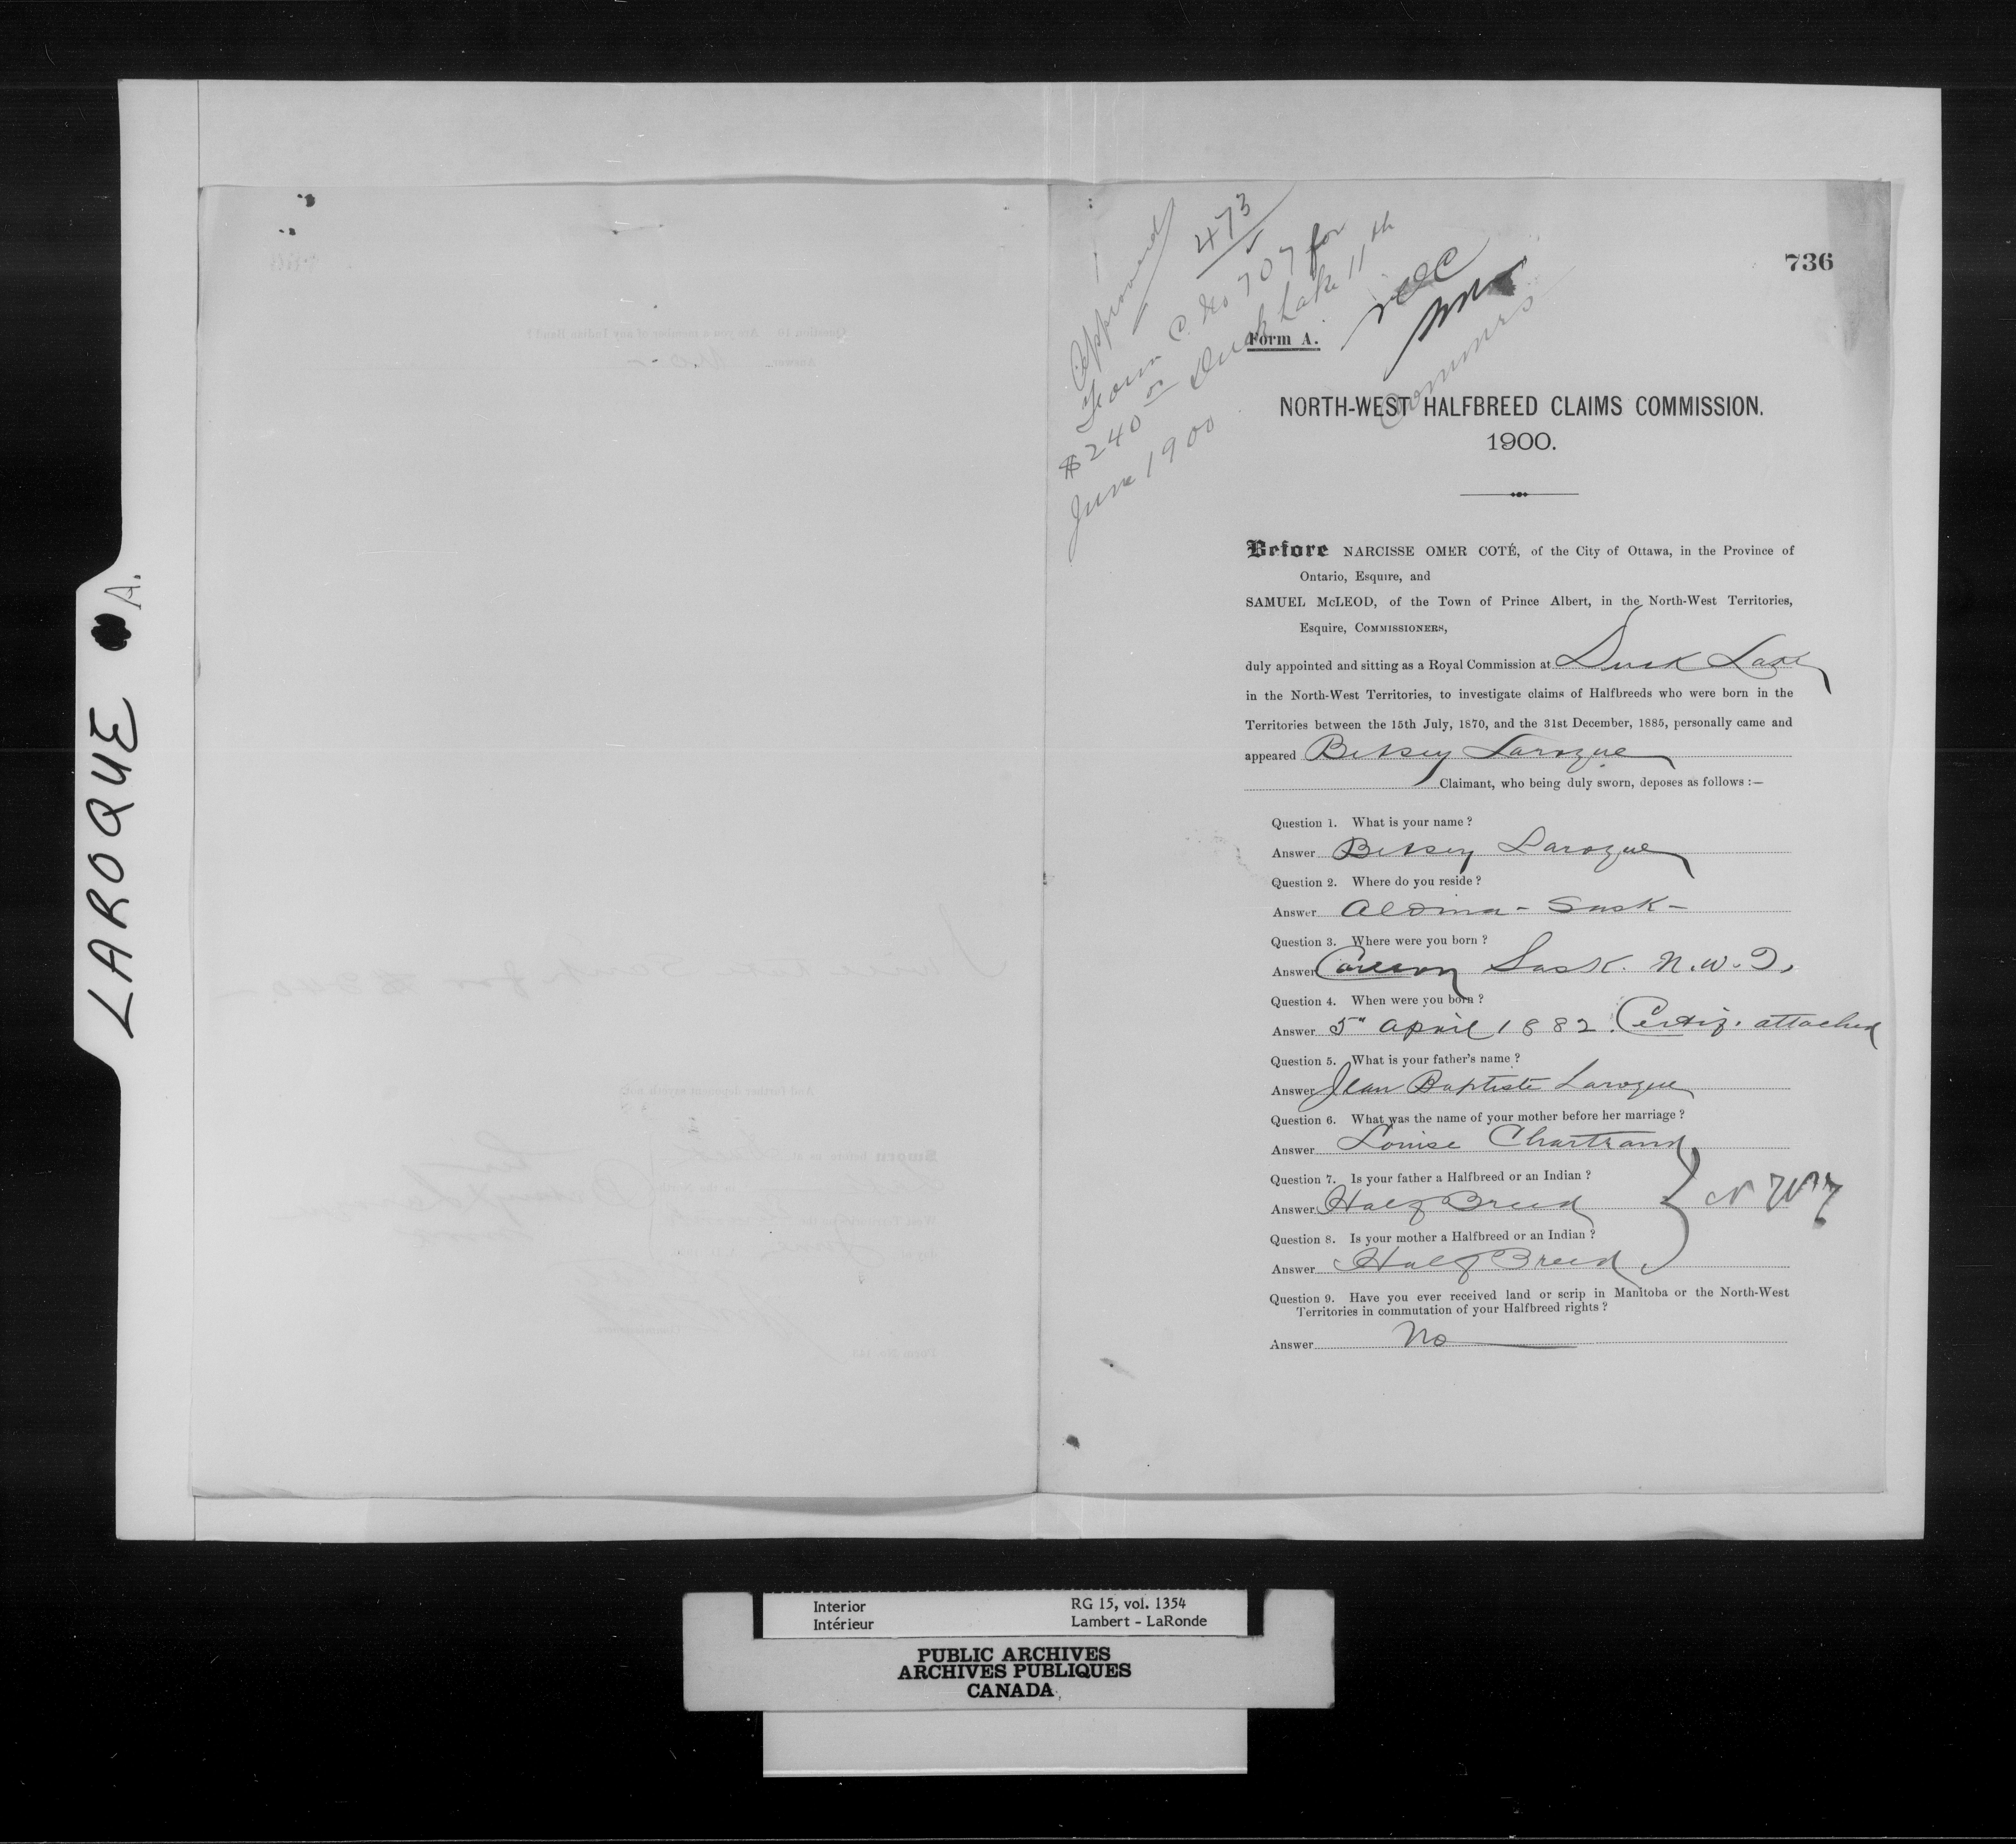 LAROQUE A.
736
Approved
473
Form C. No 707 for
$240 oo Duck Lake 11th
June 1900
NOC
Commrs
Form A.
NORTH-WEST HALFBREED CLAIMS COMMISSION.
1900.
Before NARCISSE OMER COTÉ, of the City of Ottawa, in the Province of
Ontario, Esquire, and
SAMUEL McLEOD, of the Town of Prince Albert, in the North-West Territories,
Esquire, COMMISSIONERS,
duly appointed and sitting as a Royal Commission at Duck Lake
in the North-West Territories, to investigate claims of Halfbreeds who were born in the
Territories between the 15th July, 1870, and the 31st December, 1885, personally came and
appeared Betsey Laroque
Claimant, who being duly sworn, deposes as follows :—
Question 1. What is your name ?
Answer Betsey Laroque
Question 2. Where do you reside ?
Answer Aldina - Sask -
Question 3. Where were you born ?
Answer Sask. N.W.T.
Question 4. When were you born ?
Answer 5" April 1882. Certif. attached
Question 5. What is your father's name ?
Answer Jean Baptiste Laroque
Question 6. What was the name of your mother before her marriage ?
Answer Louise Chartrand
Question 7. Is your father a Halfbreed or an Indian ?
Answer Half Breed
NWT
Question 8. Is your mother a Halfbreed or an Indian ?
Answer Half Breed
Question 9. Have you ever received land or scrip in Manitoba or the North-West
Territories in commutation of your Halfbreed rights ?
Answer No
Interior RG 15, vol. 1354
Intérieur Lambert - LaRonde
PUBLIC ARCHIVES
ARCHIVES PUBLIQUES
CANADA